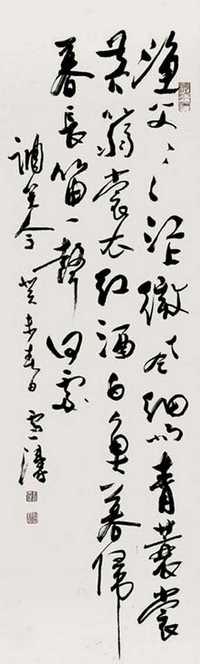 漁父〻〻江上微風細雨青蓑裳
黃篛裳衣紅酒白魚暮歸
暮長笛一聲何處
調笑令 癸未春日